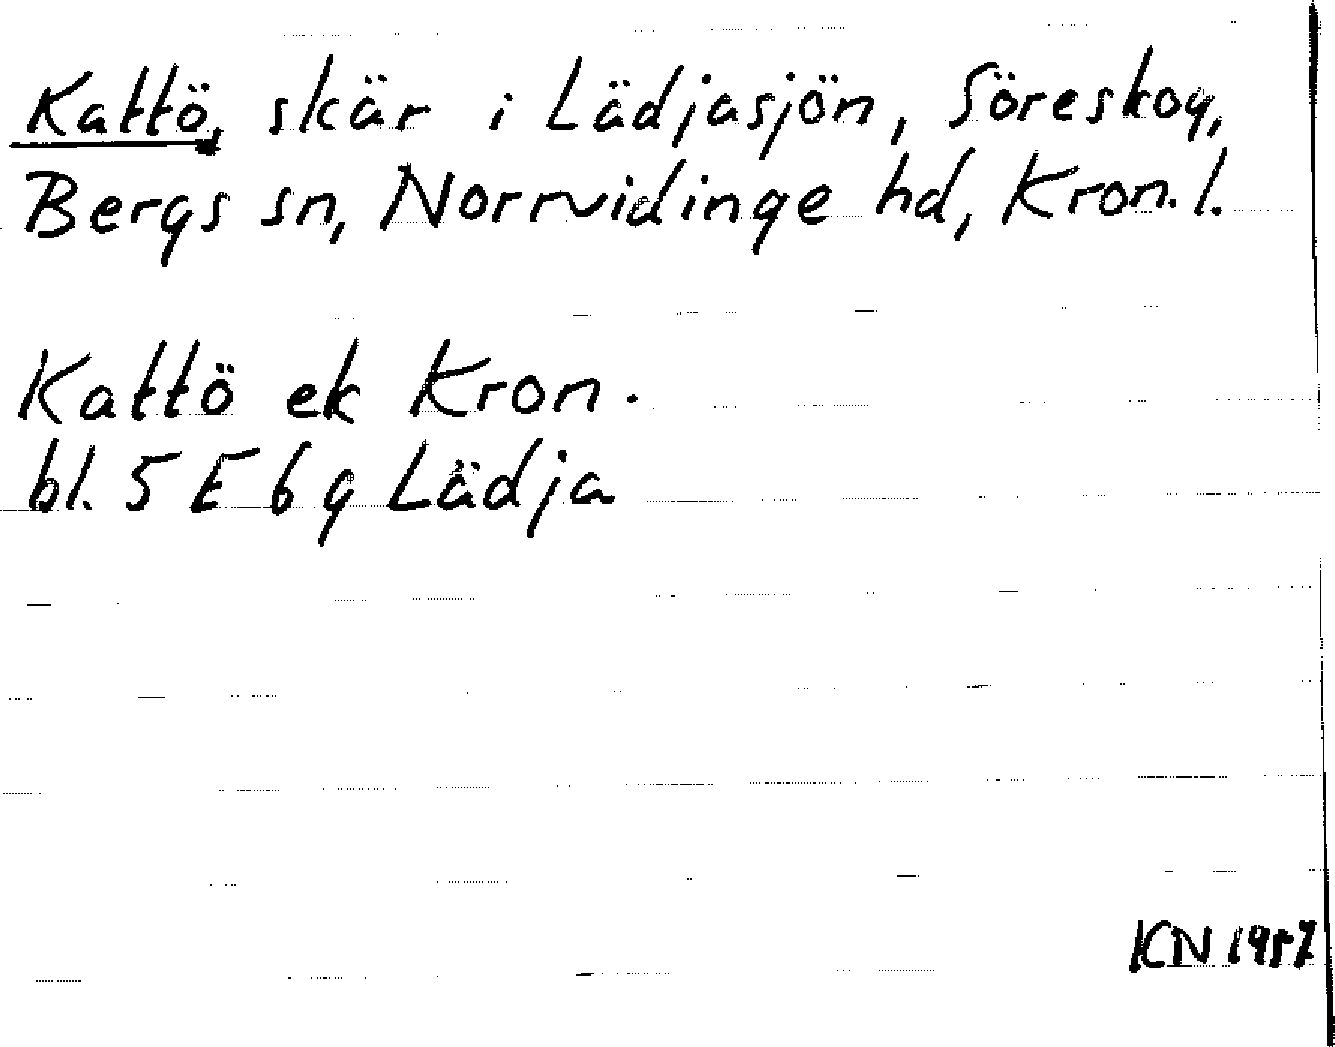 Kattö, skär i Lädjasjön, Söreskog,
Bergs sn, Norrvidinge hd, Kron. l.
Kattö ek Kron.
bl. 5 E 6 g Lädja
KN 1957